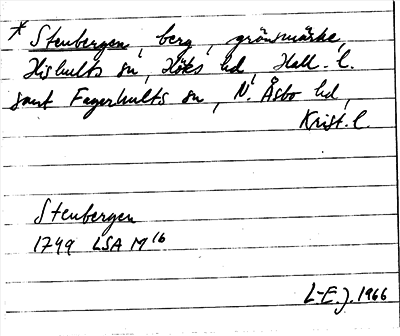 * Stenbergen, berg, gränsmärke,
Hishults sn, Höks hd, Hall. l.
samt Fagerhults sn, N. Åsbo hd,
Krist. l.
Stenbergen
1749 LSA M 16
L-E.J. 1966